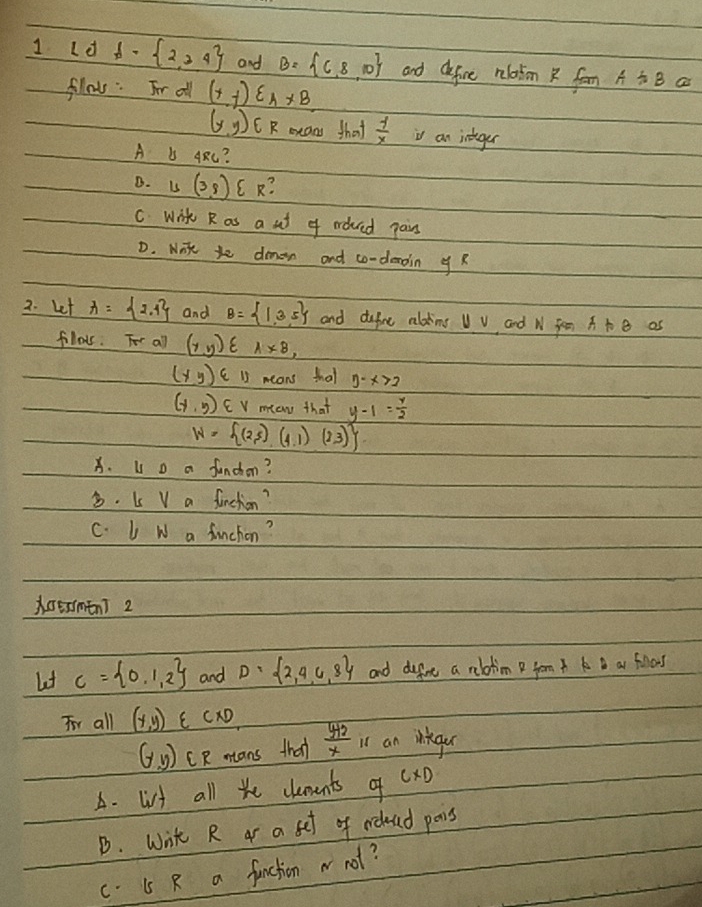 1. Let A = {2,3,4} and B = {6,8,10} and define relation R from A to B as
follows: For all (x,y) ∈ A × B
(x,y) ∈ R means that y/x is an integer
A. Is 4R6?
B. Is (3,8) ∈ R?
C. Write R as a set of ordered pairs
D. Write the domain and co-domain of R
2. Let A = {2,4} and B = {1,3,5} and define relations U V and W from A to B as
follows: For all (x,y) ∈ A × B,
(x,y) ∈ U means that y-x>2
(x,y) ∈ V means that y-1 = x/2
W = {(2,5) (4,1) (2,3)}
A. Is U a function?
B. Is V a function?
C. Is W a function?
ASSESSMENT 2
Let C = {0,1,2} and D = {2,4,6,8} and define a relation R from A to B as follows
For all (x,y) ∈ C×D
(x,y) ∈ R means that y+2/x is an integer
A. List all the elements of C×D
B. Write R as a set of ordered pairs
C. Is R a function or not?